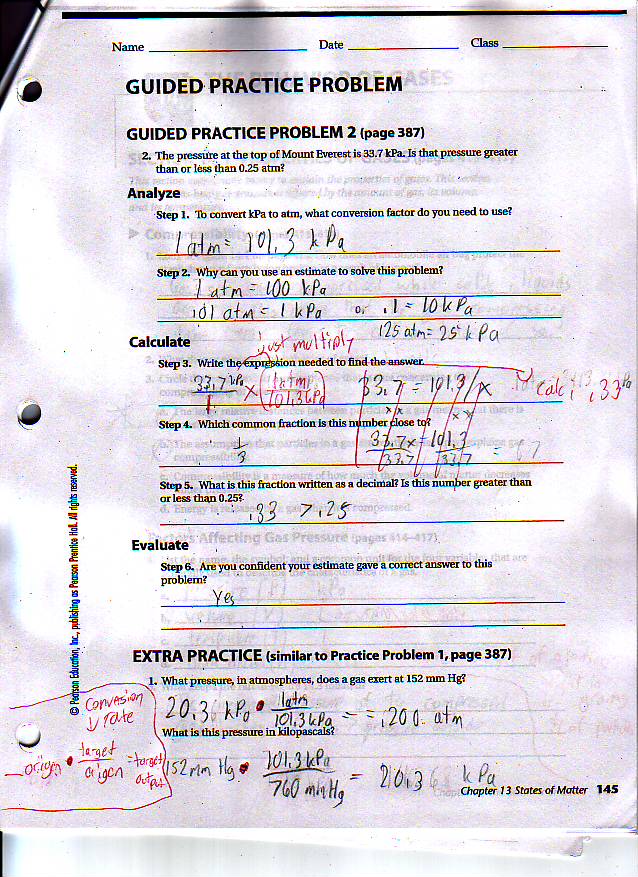 Name Date Class
GUIDED PRACTICE PROBLEM
GUIDED PRACTICE PROBLEM 2 (page 387)
2. The pressure at the top of Mount Everest is 33.7 kPa. Is that pressure greater
than or less than 0.25 atm?
Analyze
Step 1. To convert kPa to atm, what conversion factor do you need to use?
1 atm = 101.3 kPa
Step 2. Why can you use an estimate to solve this problem?
1 atm = 100 kPa
.01 atm = 1 kPa or .1 = 10 kPa
.25 atm = 25 kPa
Calculate
just multiply
Step 3. Write the expression needed to find the answer.
33.7 kPa / 1 × (1 atm / 101.3 kPa) 33.7 = 101.3/x calc: .33
Step 4. Which common fraction is this number close to?
1/3 33.7x/33.7 = 101.3/33.7 =
Step 5. What is this fraction written as a decimal? Is this number greater than
or less than 0.25?
.33 > .25
Evaluate
Step 6. Are you confident your estimate gave a correct answer to this
problem?
Yes
Factors Affecting Gas Pressure (pages 416–417)
EXTRA PRACTICE (similar to Practice Problem 1, page 387)
1. What pressure, in atmospheres, does a gas exert at 152 mm Hg?
20.3 kPa • 1 atm / 101.3 kPa = .200 atm
What is this pressure in kilopascals?
152 mm Hg • 101.3 kPa / 760 mm Hg = 20.3 kPa
Conversion
rate
origen • target / origen = target output
Chapter 13 States of Matter 145
© Pearson Education, Inc., publishing as Pearson Prentice Hall. All rights reserved.